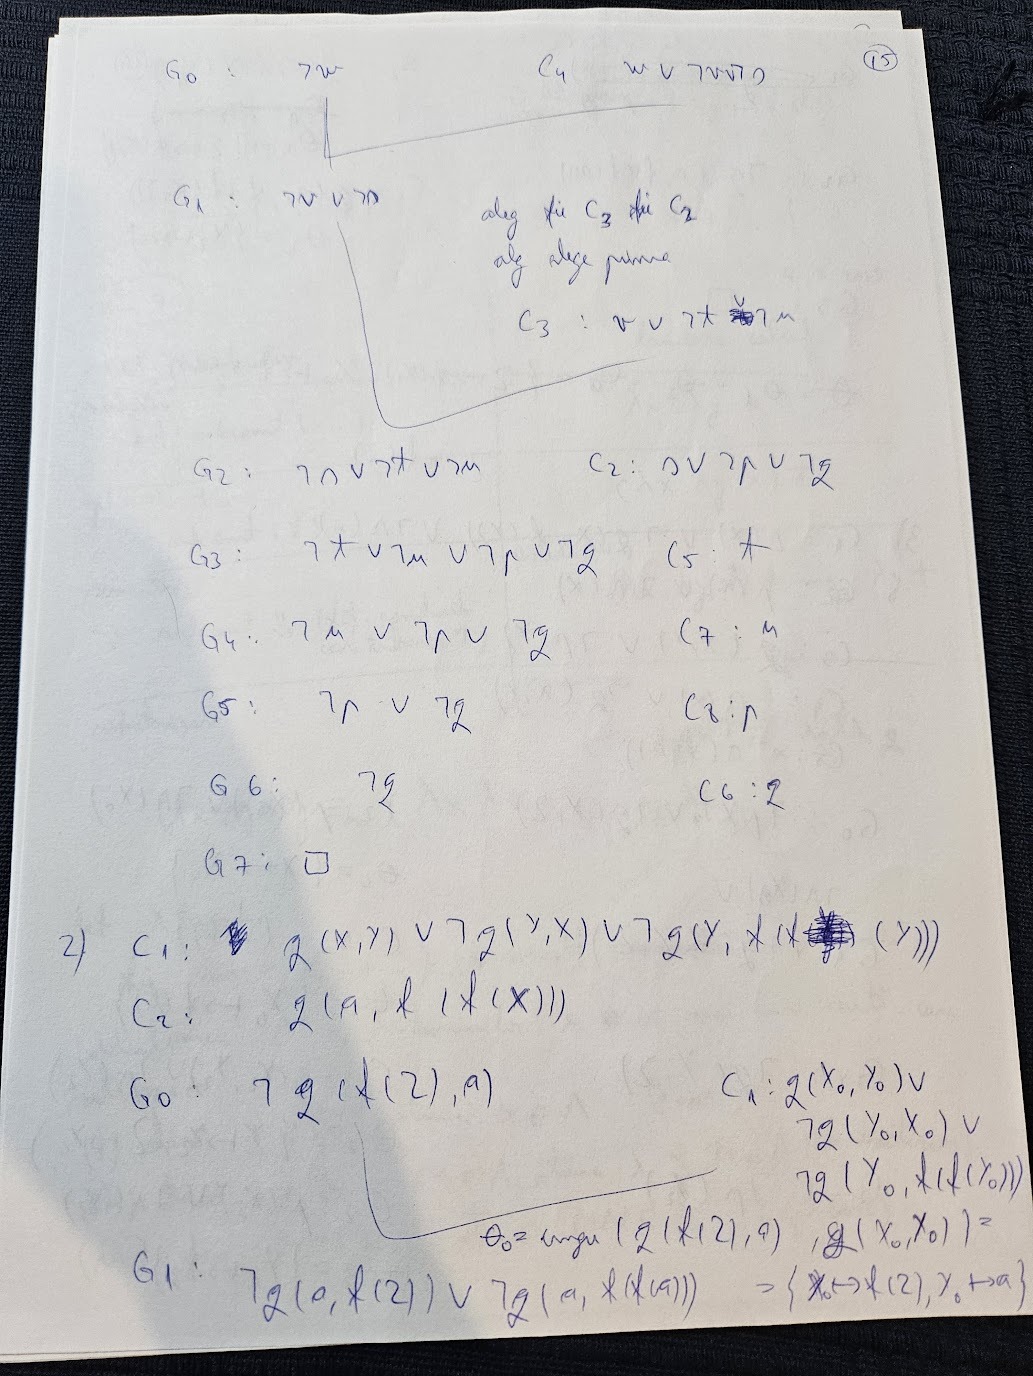 15
G0 : ¬w C4 w ∨ ¬v ∨ ¬s
G1 : ¬v ∨ ¬s
aleg fie C3 fie C2
alg alege prima
C3 : v ∨ ¬t ∨ ¬u
G2 : ¬s ∨ ¬t ∨ ¬u C2 : s ∨ ¬p ∨ ¬q
G3 : ¬t ∨ ¬u ∨ ¬p ∨ ¬q C5 : t
G4 : ¬u ∨ ¬p ∨ ¬q C7 : u
G5 : ¬p ∨ ¬q C8 : p
G6 : ¬q C6 : q
G7 : □
2) C1 : q(X,Y) ∨ ¬q(Y,X) ∨ ¬q(Y, f(f(Y)))
C2 : q(a, f(f(X)))
G0 : ¬q(f(Z),a) C1 : q(X0,Y0) ∨
¬q(Y0,X0) ∨
¬q(Y0, f(f(Y0)))
θ0 = cmgu (q(f(Z),a), q(X0,X0)) =
G1 : ¬q(a, f(Z)) ∨ ¬q(a, f(f(a))) = {X0 ↦ f(Z), Y0 ↦ a}